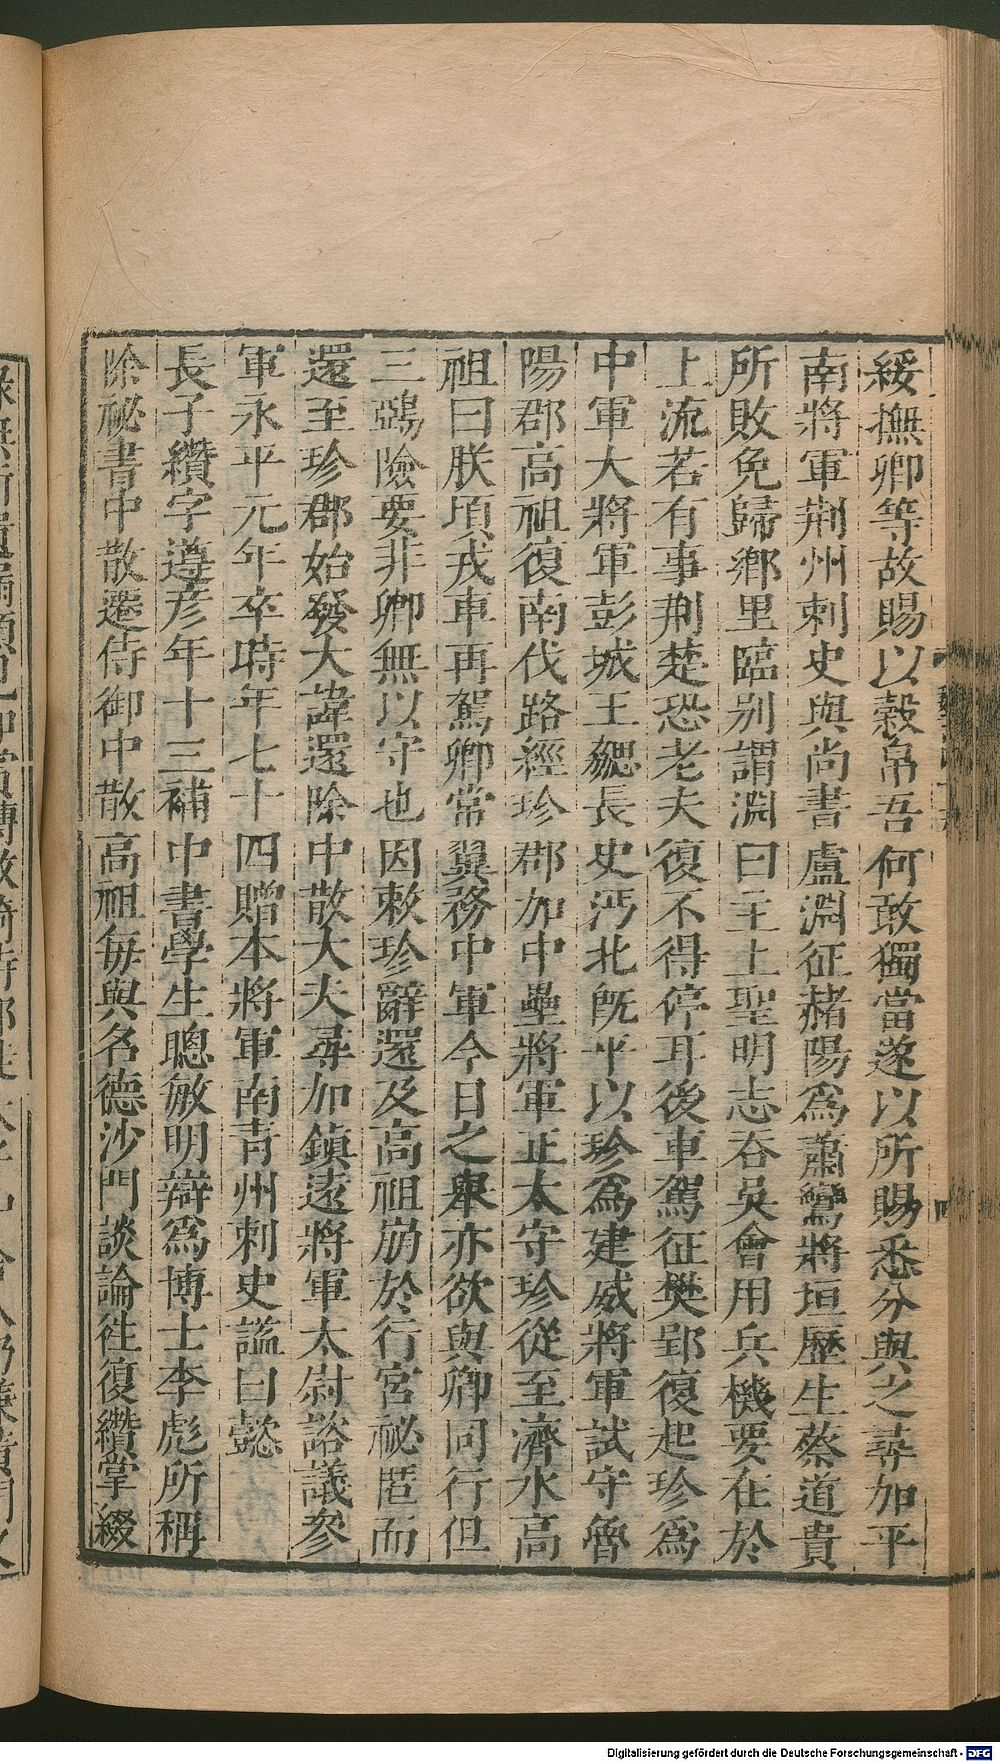 綏撫卿等故賜以縠帛吾何敢獨當遂以所賜悉分與之尋加平
南將軍荆州刺史與尚書盧淵征赭陽爲蕭鸞將垣歷生蔡道貴
所敗免歸鄉里臨别謂淵曰主上聖明志吞吳會用兵機要在於
上流若有事荆楚恐老夫復不得停耳後車駕征樊鄧復起珍爲
中軍大將軍彭城王勰長史沔北旣平以珍爲建威將軍試守魯
陽郡高祖復南伐路經珍郡加中壘將軍正太守珍從至濟水高
祖曰朕頃戎車再駕卿常翼務中軍今日之舉亦欲與卿同行但
三鵶險要非卿無以守也因敕珍辭還及高祖崩於行宫祕匿而
還至珍郡始發大諱還除中散大夫尋加鎮遠將軍太尉諮議參
軍永平元年卒時年七十四贈本將軍南青州刺史謚曰懿
長子纘字遵彦年十三補中書學生聰敏明辯爲博士李彪所稱
除祕書中散遷侍御中散高祖每與名德沙門談論往復纘掌綴
Digitalisierung gefördert durch die Deutsche Forschungsgemeinschaft - DFG